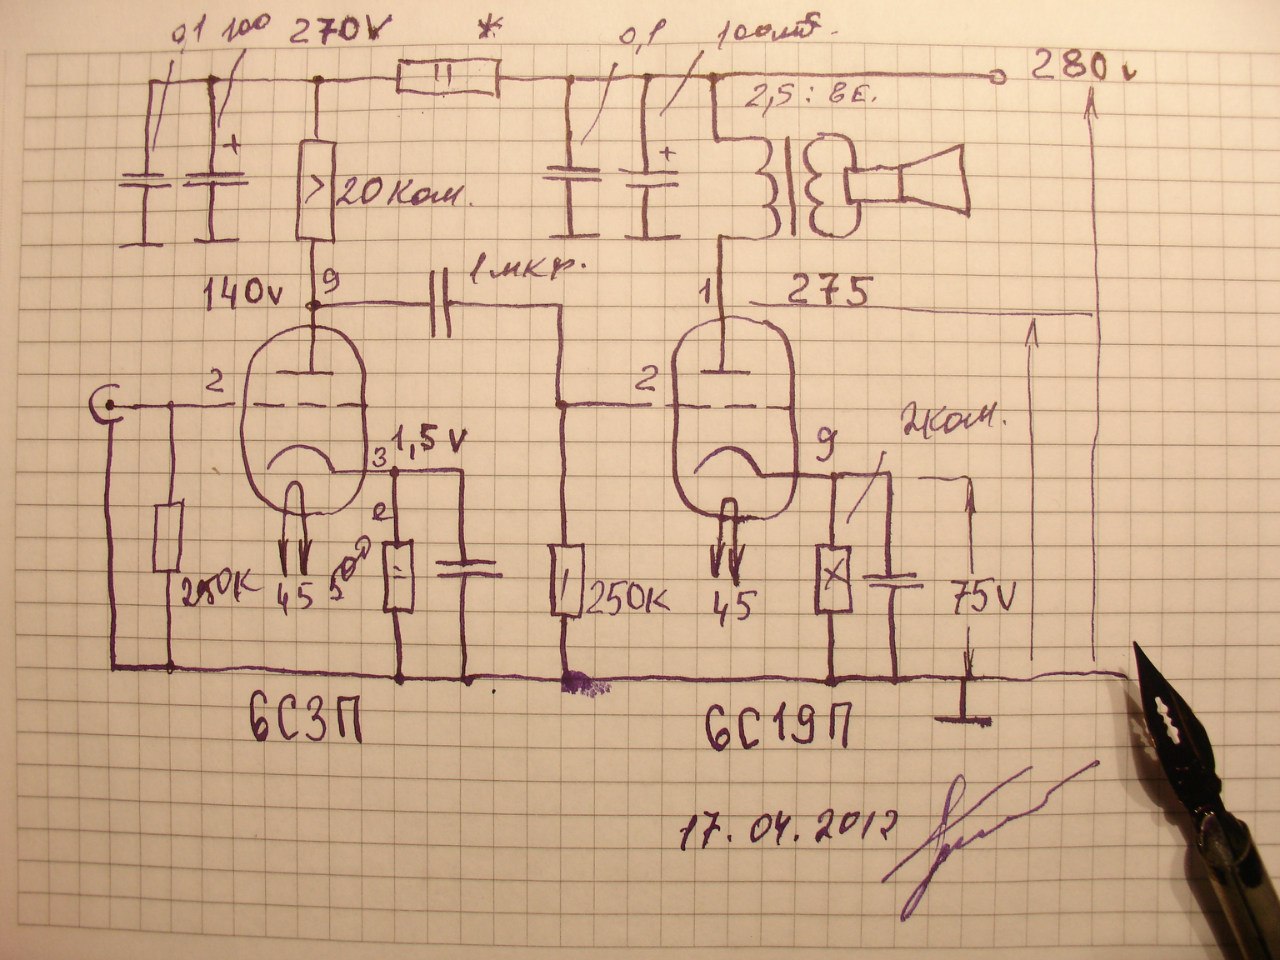 0,1 100 270V * 0,1 100мf. 280v
2,5 : 8Е.
20 Ком.
140v 9 1 мкф. 1 275
2 2
3 1,5 v 9 2ком.
250К 45 250К 45 75V
6С3П 6С19П
17.04.2012